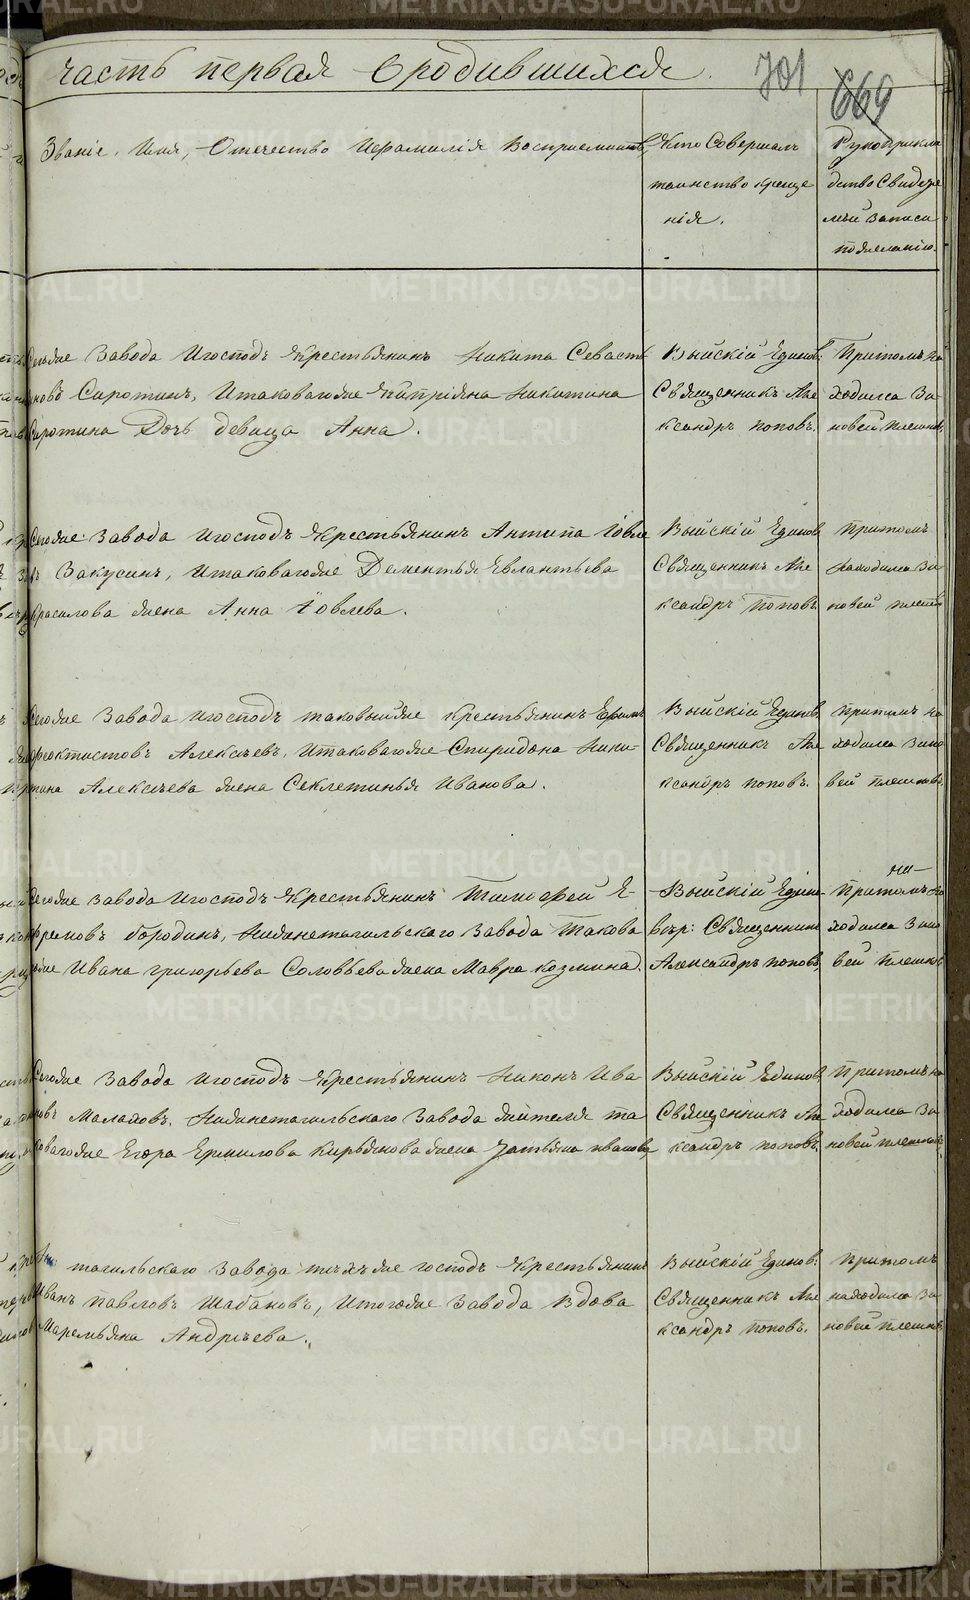 часть первая о родившихся. 701 669
Званіе, Имя, Отечество Ифамилія Воспріемник
Кто Совершалъ
таинство креще
нія.
Рукоприкла
дство Свидете
лей Записи
пожеланію.
Сегоже Завода Игосподъ Крестьянинъ Никита Севасть
яновъ Сиротинъ, Итаковагоже Кипріяна Никитина
Сиротина Дочь девица Анна.
Выйскій Единов:
Священникъ Але
ксандръ поповъ.
Притомъ на
ходился Зи
новей Плешков
Сегоже Завода Игосподъ Крестьянинъ Антипа Іовле
въ Закусинъ, Итаковагоже Дементья Евлантьева
Красилова жена Анна Іовлева.
Выйскій Единов
Священникъ Але
ксандръ Поповъ
Притомъ
находился Зи
новей плеш
Сегоже Завода Игосподъ таковыйже крестьянинъ Ефимъ
Феоктистовъ Алексеевъ, Итаковагоже Спиридона Ники-
тина Алексеева жена Секлетинья Иванова.
Выйскій Единов
Священникъ Але
ксандръ поповъ.
притомъ на
ходился Зино
вей плешков
Сегоже завода Игосподъ Крестьянинъ Тимофей Е-
фремовъ бородинъ, Нижнетагильскаго Завода Такова
гоже Ивана григорьева Соловьева жена Мавра козмина.
Выйскій Едино
вѣр: Священникъ
Александръ поповъ,
на-
Притомъ на
ходился Зино
вей Плешков
Сегоже Завода Игосподъ Крестьянинъ Никонъ Ива
новъ Малаховъ, Нижнетагильскаго Завода жителя та
ковагоже Егора Ермилова кирьянова жена Татьяна иванова
Выйскій Единов
Священникъ Але
ксандръ поповъ.
Притомъ на
ходился Зи
новей плешков
тагильскаго Завода техъже господъ Крестьянинъ
Иванъ Павловъ Шабановъ, Итогоже Завода Вдова
Маремьяна Андреева.
Выйскій Единов:
Священникъ Але
ксандръ поповъ.
притомъ
находился Зи
новей плешков
METRIKI.GASO-URAL.RU